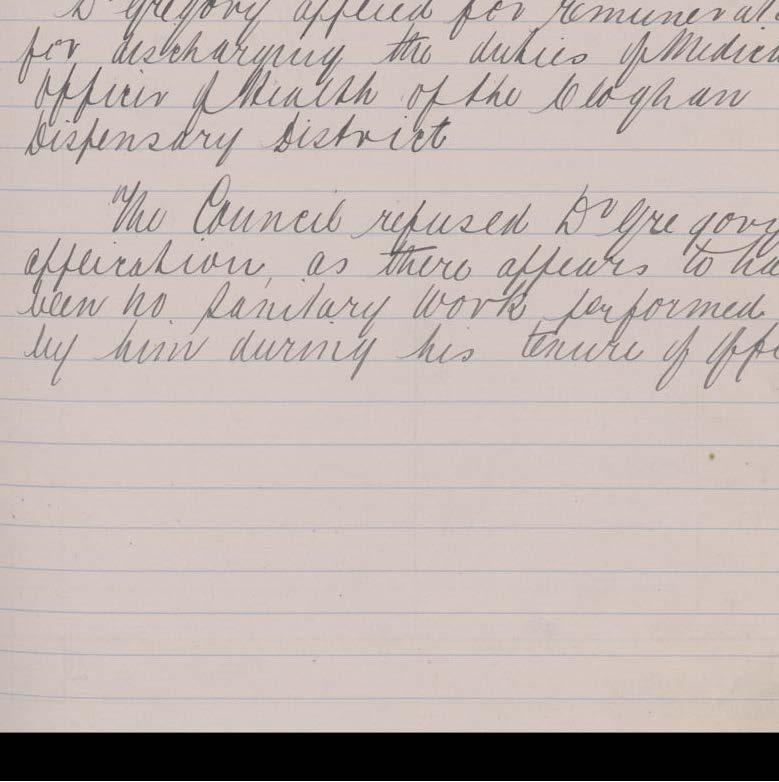 Dr Gregory applied for remunerat
for discharging the duties of Medica
Officer of Health of the Cloghan
Dispensary District
The Council refused Dr Gregory
application, as there appears to ha
been no sanitary work performed
by him during his tenure of offi